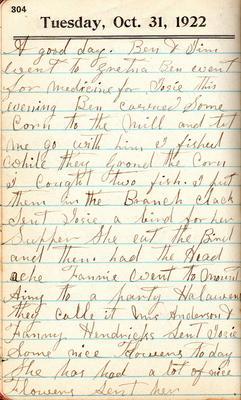 304
Tuesday, Oct. 31, 1922
A good day. Ben & Jim
went to Gretna Ben went
for medicine for Josie this
evening Ben carried Some
Corn to the Mill and let
me go with him I fished
while they Ground the Corn
I cought two fish. I put
them in the Branch Clack
Sent Josie a bird for her
Supper She eat the Bird
and then had the Head
ache Fannie went to Mount
Airy to a party Haloween
they calle it Mrs Anderson &
Fanny Hendricks Sent Josie
Some nice Flowers today
She has had a lot of nice
Flowers Sent her